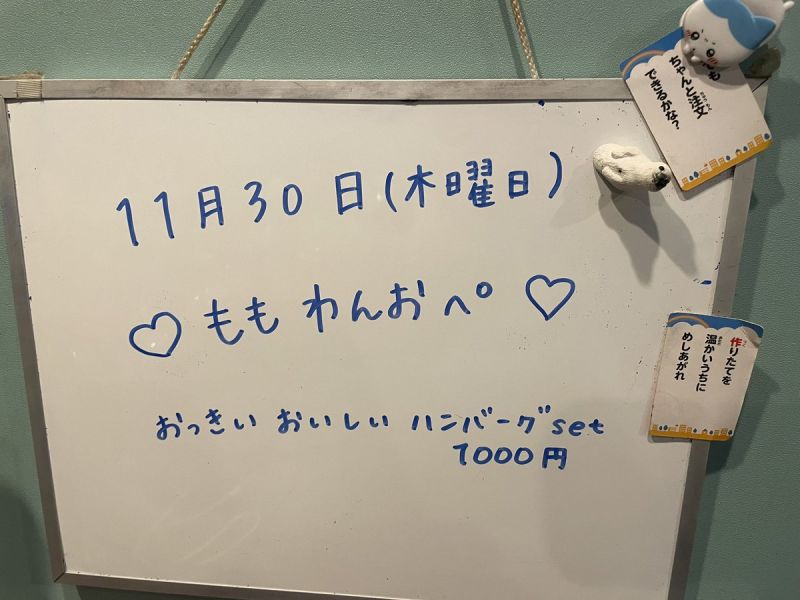 11月30日(木曜日)
♡ もも わんおペ ♡
おっきい おいしい ハンバーグset
1000円
も
ちゃんと注文
できるかな?
作りたてを
温かいうちに
めしあがれ